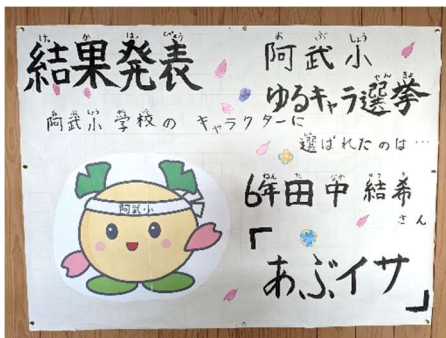 結果発表
阿武小
ゆるキャラ選挙
阿武小学校のキャラクターに
選ばれたのは…
6年田中結希さん
「あぶイサ」
阿武小